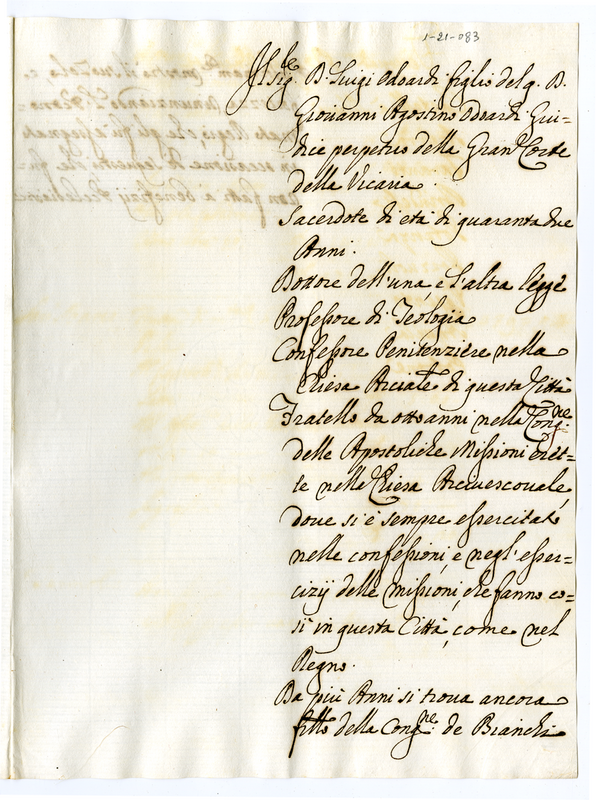 1-21-083
Il Sig.le D. Luigi Odoardi figlio del q. D.
Giovanni Agostino Odoardi Giu=
dice perpetuo della Gran Corte
della Vicaria.
Sacerdote di età di quaranta due
Anni.
Dottore dell'una, e l'altra legge
Professore di Teologia
Confessore Penitenziere nella
Chiesa Arciule di questa Città
Fratello da otto anni nella Cong.ne
delle Apostoliche Missioni eret=
te nella Chiesa Arcivescovale,
doue si è sempre essercitato
nelle confessioni, e negl'esser=
cizij delle missioni, che fanno co=
sì in questa Città, come nel
Regno.
Da più Anni si troua ancora
fatto della Cong.ne de Bianchi